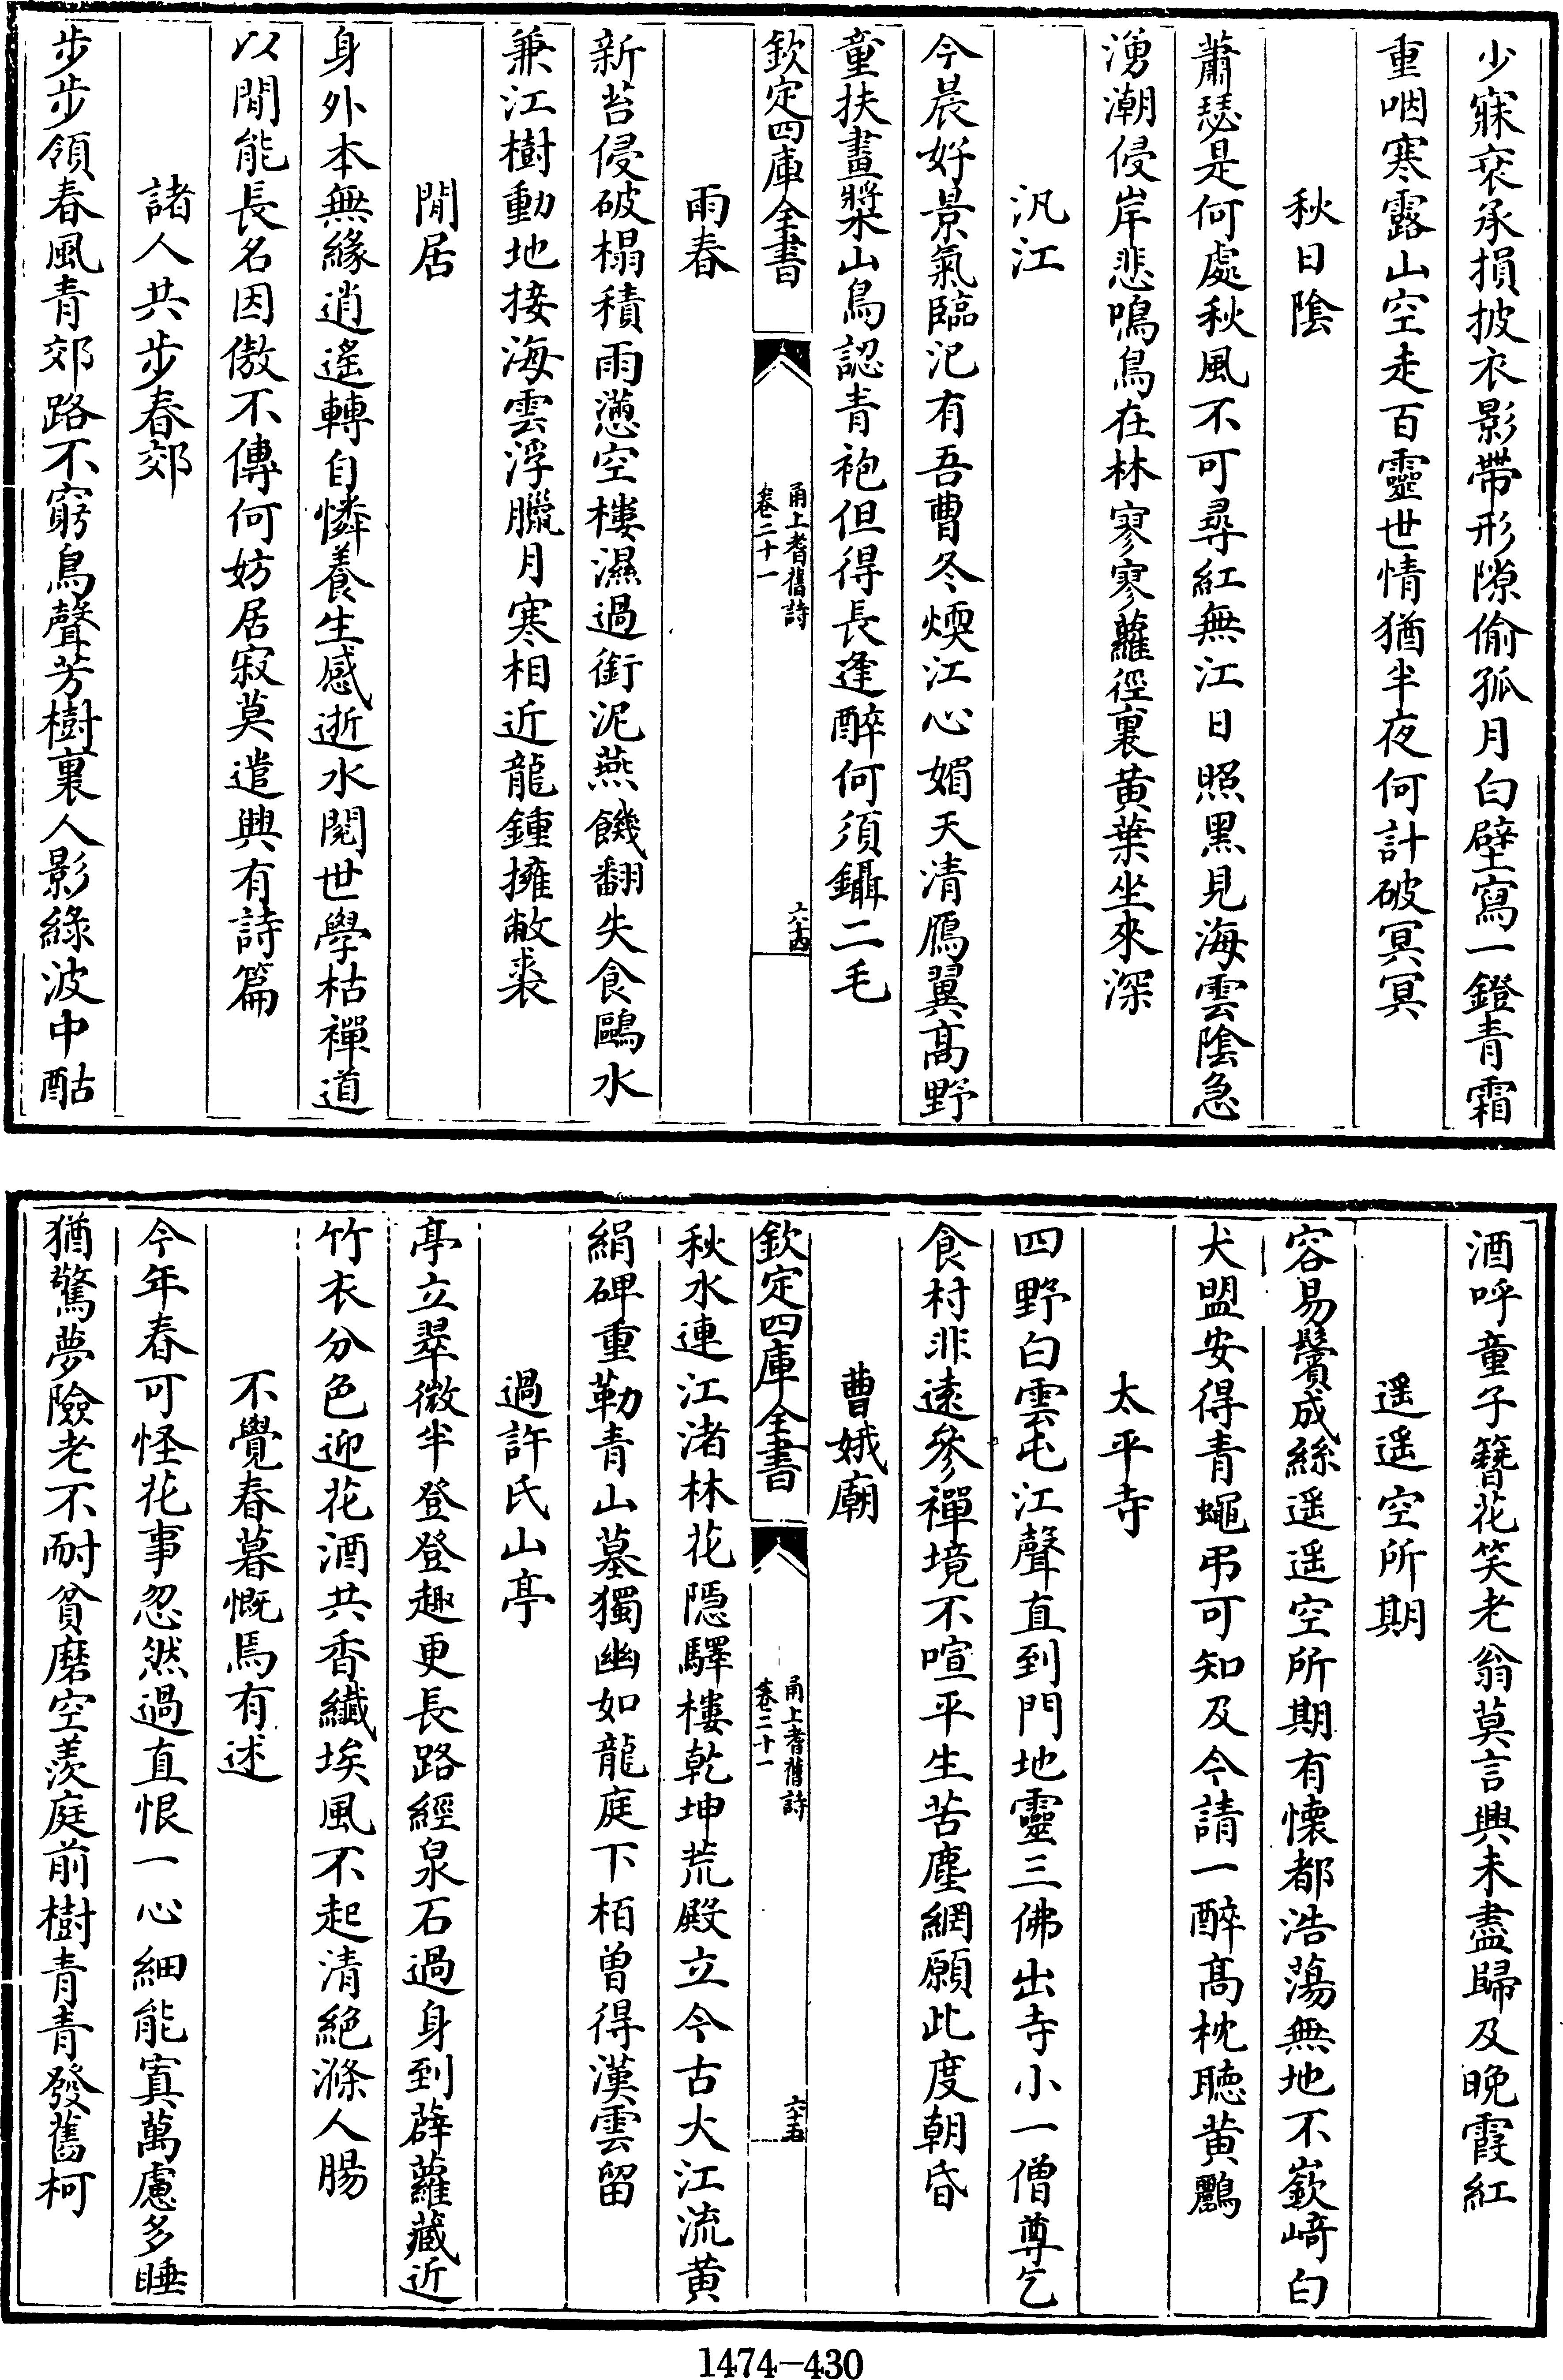 少寐衾承損披衣影帶形隙偷孤月白壁寫一鐙青霜
重咽寒露山空走百靈世情猶半夜何計破冥冥
秋日陰
蕭瑟是何處秋風不可尋紅無江日照黒見海雲陰急
湧潮侵岸悲鳴鳥在林寥寥蘿徑裏黄葉坐來深
汎江
今晨好景氣臨汜有吾曹冬煗江心媚天清鴈翼髙野
童扶畫槳山鳥認青袍但得長逢醉何須鑷二毛
欽定四庫全書
甬上耆舊詩
卷二十一
六十四
雨春
新苔侵破榻積雨懣空樓濕過銜泥燕饑翻失食鷗水
兼江樹動地接海雲浮臘月寒相近龍鍾擁敝裘
閒居
身外本無緣逍遙轉自憐養生感逝水閱世學枯禪道
以閒能長名因傲不傳何妨居寂莫遣興有詩篇
諸人共步春郊
步步領春風青郊路不窮鳥聲芳樹裏人影綠波中酤
酒呼童子簪花笑老翁莫言興未盡歸及晚霞紅
遥遥空所期
容易鬢成絲遥遥空所期有懐都浩蕩無地不嶔﨑白
犬盟安得青蠅弔可知及今請一醉髙枕聴黄鸝
太平寺
四野白雲屯江聲直到門地靈三佛出寺小一僧尊乞
食村非逺參禪境不喧平生苦塵網願此度朝昏
曹娥廟
欽定四庫全書
甬上耆舊詩
卷二十一
六十五
秋水連江渚林花隠驛樓乾坤荒殿立今古大江流黄
絹碑重勒青山墓獨幽如龍庭下栢曽得漢雲留
過許氏山亭
亭立翠微半登登趣更長路經泉石過身到薜蘿藏近
竹衣分色迎花酒共香纎埃風不起清絶滌人腸
不覺春暮慨焉有述
今年春可怪花事忽然過直恨一心細能寘萬慮多睡
猶驚夢險老不耐貧磨空羨庭前樹青青發舊柯
1474-430